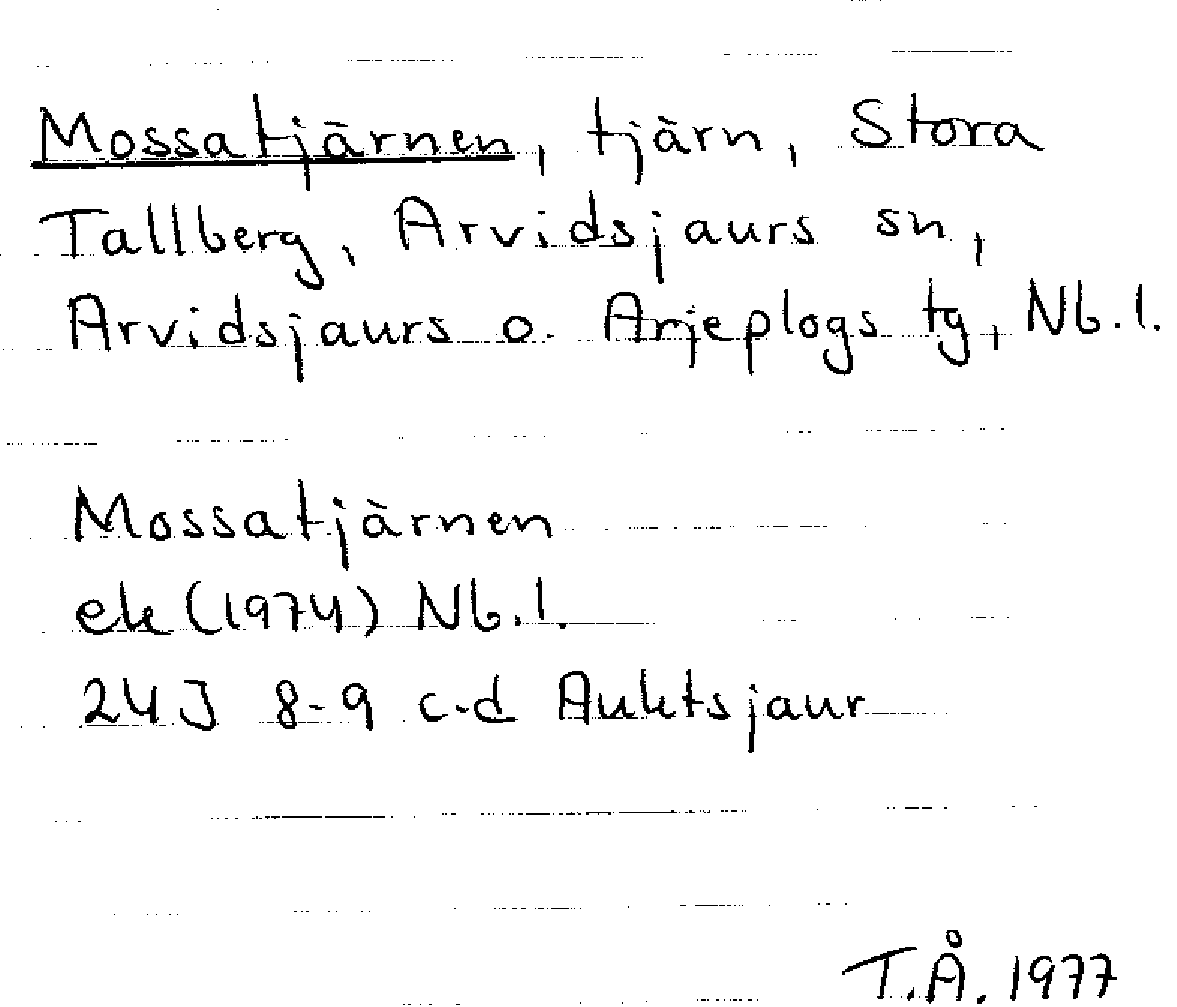 Mossatjärnen, tjärn, Stora
Tallberg, Arvidsjaurs sn,
Arvidsjaurs o. Arjeplogs tg, Nb.l.
Mossatjärnen
ek (1974) Nb.l.
24J 8-9 c-d Auktsjaur
T.Å. 1977